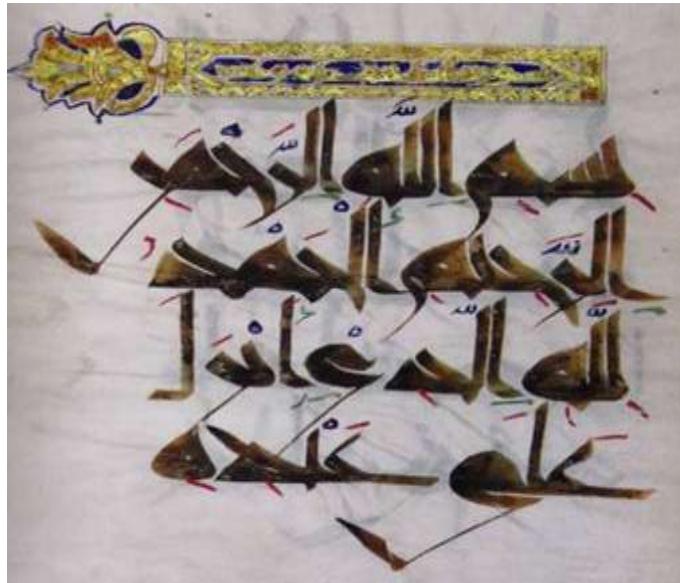 بِسْمِ اللَّهِ الرَّحْمَنِ
الرَّحِيمِ الْحَمْدُ
لِلَّهِ الَّذِي أَنْزَلَ
عَلَى عَبْدِهِ